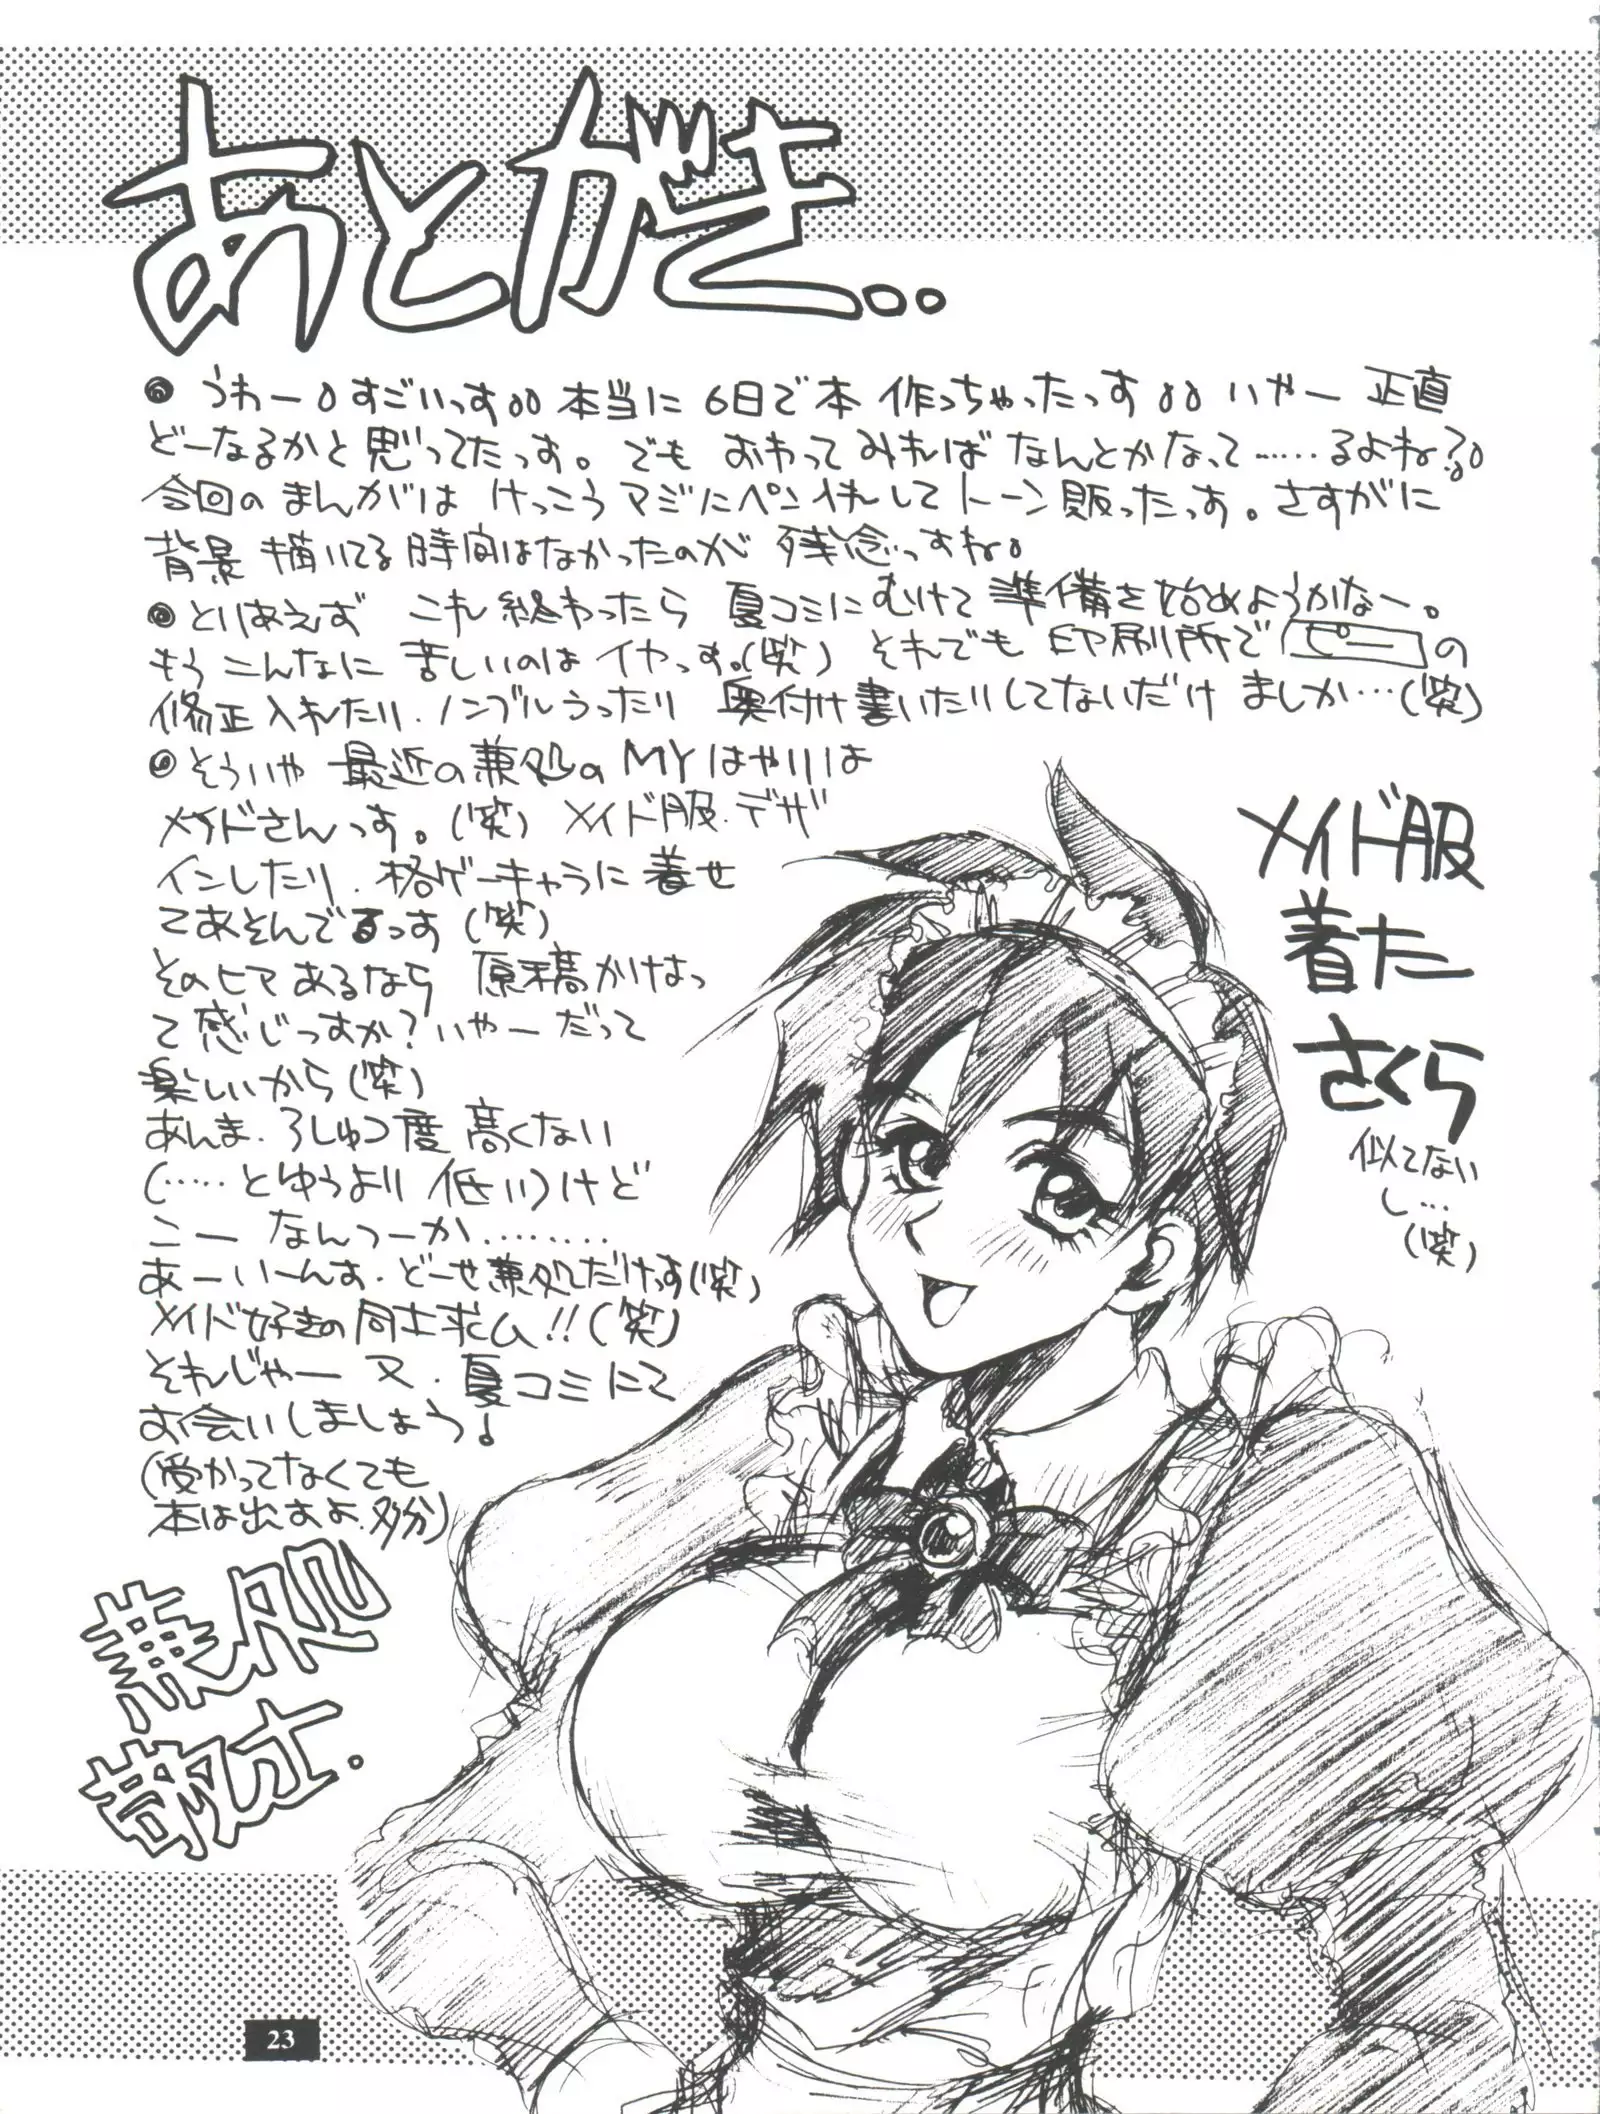 あとがき。。
◎うわー!すごいっす!!本当に6日で本作っちゃったっす!!いやー正直
どーなるかと思ってたっす。でもおわってみればなんとかなって……るよね?!
今回のまんがはけっこうマジにペン入れしてトーン販ったっす。さすがに
背景描いてる時間はなかったのが残念っすね。
◎とりあえずこれ終わったら夏コミにむけて準備を始めようかなー。
もうこんなに苦しいのはイヤっす。(笑)それでも印刷所でピーの
修正入れたり、ノンブルうったり奥付け書いたりしてないだけましか…(笑)
◎そういや最近の兼処のMYはやりは
メイドさんっす。(笑)メイド服デザ
インしたり、格ゲーキャラに着せ
てあそんでるっす(笑)
そのヒマあるなら原稿かけはっ
て感じっすか?いやーだって
楽しいから(笑)
あんま、ろしゅつ度高くない
(……とゆうより低い)けど
こーなんつーか………
あーいーんす、どーせ兼処だけっす(笑)
メイド好きの同士求ム!!(笑)
それじゃー又、夏コミにて
お会いしましょう!
(受かってなくても
本は出すよ、多分)
兼処
敬士.
メイド服
着た
さくら
似てない
し…
(笑)
23